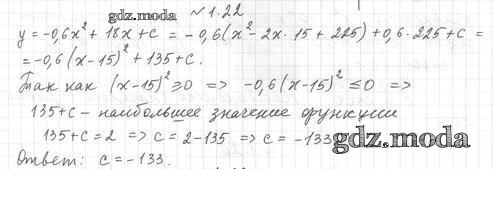 gdz.moda
№1.22
y = -0,6x² + 18x + c = -0,6(x² - 2x · 15 + 225) + 0,6 · 225 + c =
= -0,6(x - 15)² + 135 + c.
Так как (x - 15)² ≥ 0 => -0,6(x - 15)² ≤ 0 =>
135 + c - наибольшее значение функции
135 + c = 2 => c = 2 - 135 => c = -133
gdz.moda
Ответ: c = -133.